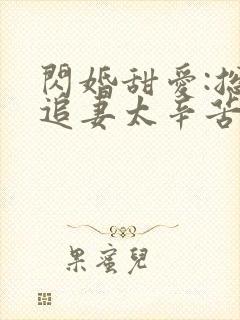 閃婚甜愛:
追妻太辛苦
果蜜兒